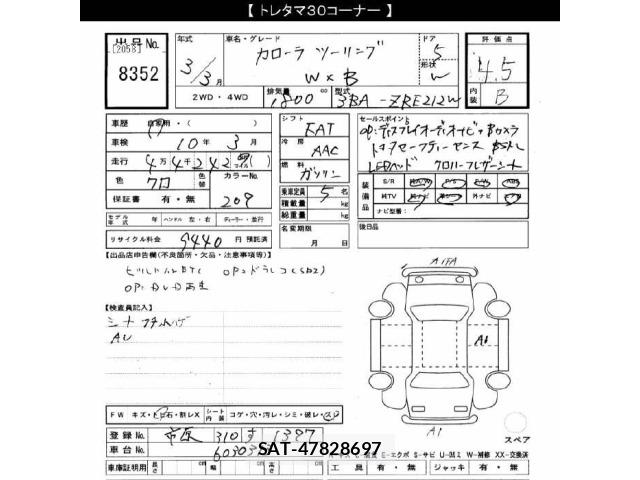 【 トレタマ30コーナー 】
出品No.
[2058]
8352
年式
3/3月
車名・グレード
カローラ ツーリング
W×B
ドア
5
形状
W
評価点
4.5
内装
B
2WD・4WD
排気量
1800 cc
型式
3BA-ZRE212W
車歴
自家用・( )
車検
10年 3月
走行
4万4千242
色
クロ
色替
カラーNo.
209
保証書 有・無
シフト
FAT
冷房
AAC
燃料
ガソリン
乗車定員 5 名
積載量 kg
総重量 kg
セールスポイント
OP:ディスプレイオーディオ・ナビ・Bカメラ
トヨタセーフティーセンス
LEDヘッド クロハーフレザーシート
装備品
S/R
MTV
ナビ型番
モデル年式 年 ハンドル 左・右 ディーラー・並行
名変期限
月 日
後日品
リサイクル料金 9440 円 預託済
【出品店申告欄(不良箇所・欠品・注意事項等)】
ビルトインETC OP:ドラレコ(SD2)
OP:DVD再生
【検査員記入】
シートフチスレハゲ
AU
A1
A1
FW キズ・トビ石・割レX シート内装 コゲ・穴・汚レ・シミ・破レ・スレ
登録No. 市原 310 す 1397
車台No.
SAT-47828697
スペア
E-エクボ S-サビ W-補修 XX-交換済
車庫証明用 長さ cm 幅 cm 高さ cm 工具 有・無 ジャッキ 有・無